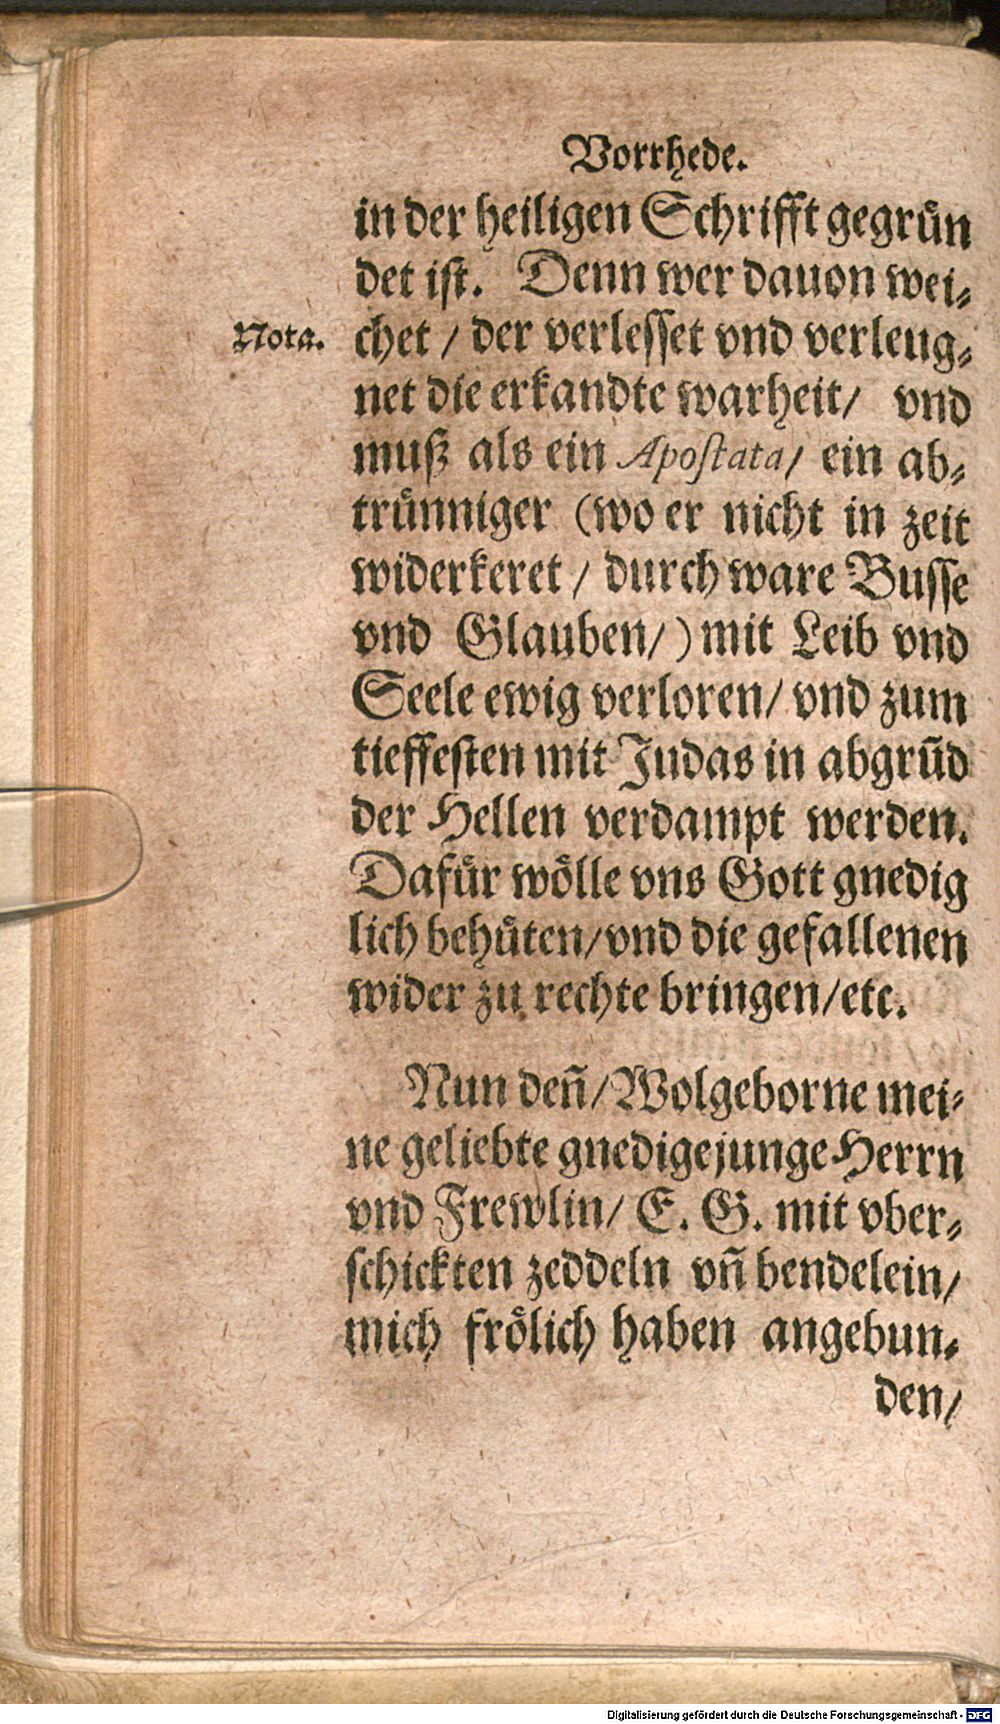 Vorrhede.
in der heiligen Schrifft gegrün
det ist. Denn wer dauon wei-
Nota.
chet / der verlesset vnd verleug-
net die erkandte warheit/ vnd
muß als ein Apostata/ ein ab-
trünniger (wo er nicht in zeit
widerkeret / durch ware Busse
vnd Glauben/) mit Leib vnd
Seele ewig verloren/ vnd zum
tieffesten mit Judas in abgrūd
der Hellen verdampt werden.
Dafür wölle vns Gott gnedig
lich behüten/vnd die gefallenen
wider zu rechte bringen/etc.
Nun deñ/Wolgeborne mei-
ne geliebte gnedige junge Herrn
vnd Frewlin/ E. G. mit vber-
schickten zeddeln vñ bendelein/
mich frölich haben angebun-
den/
Digitalisierung gefördert durch die Deutsche Forschungsgemeinschaft - DFG